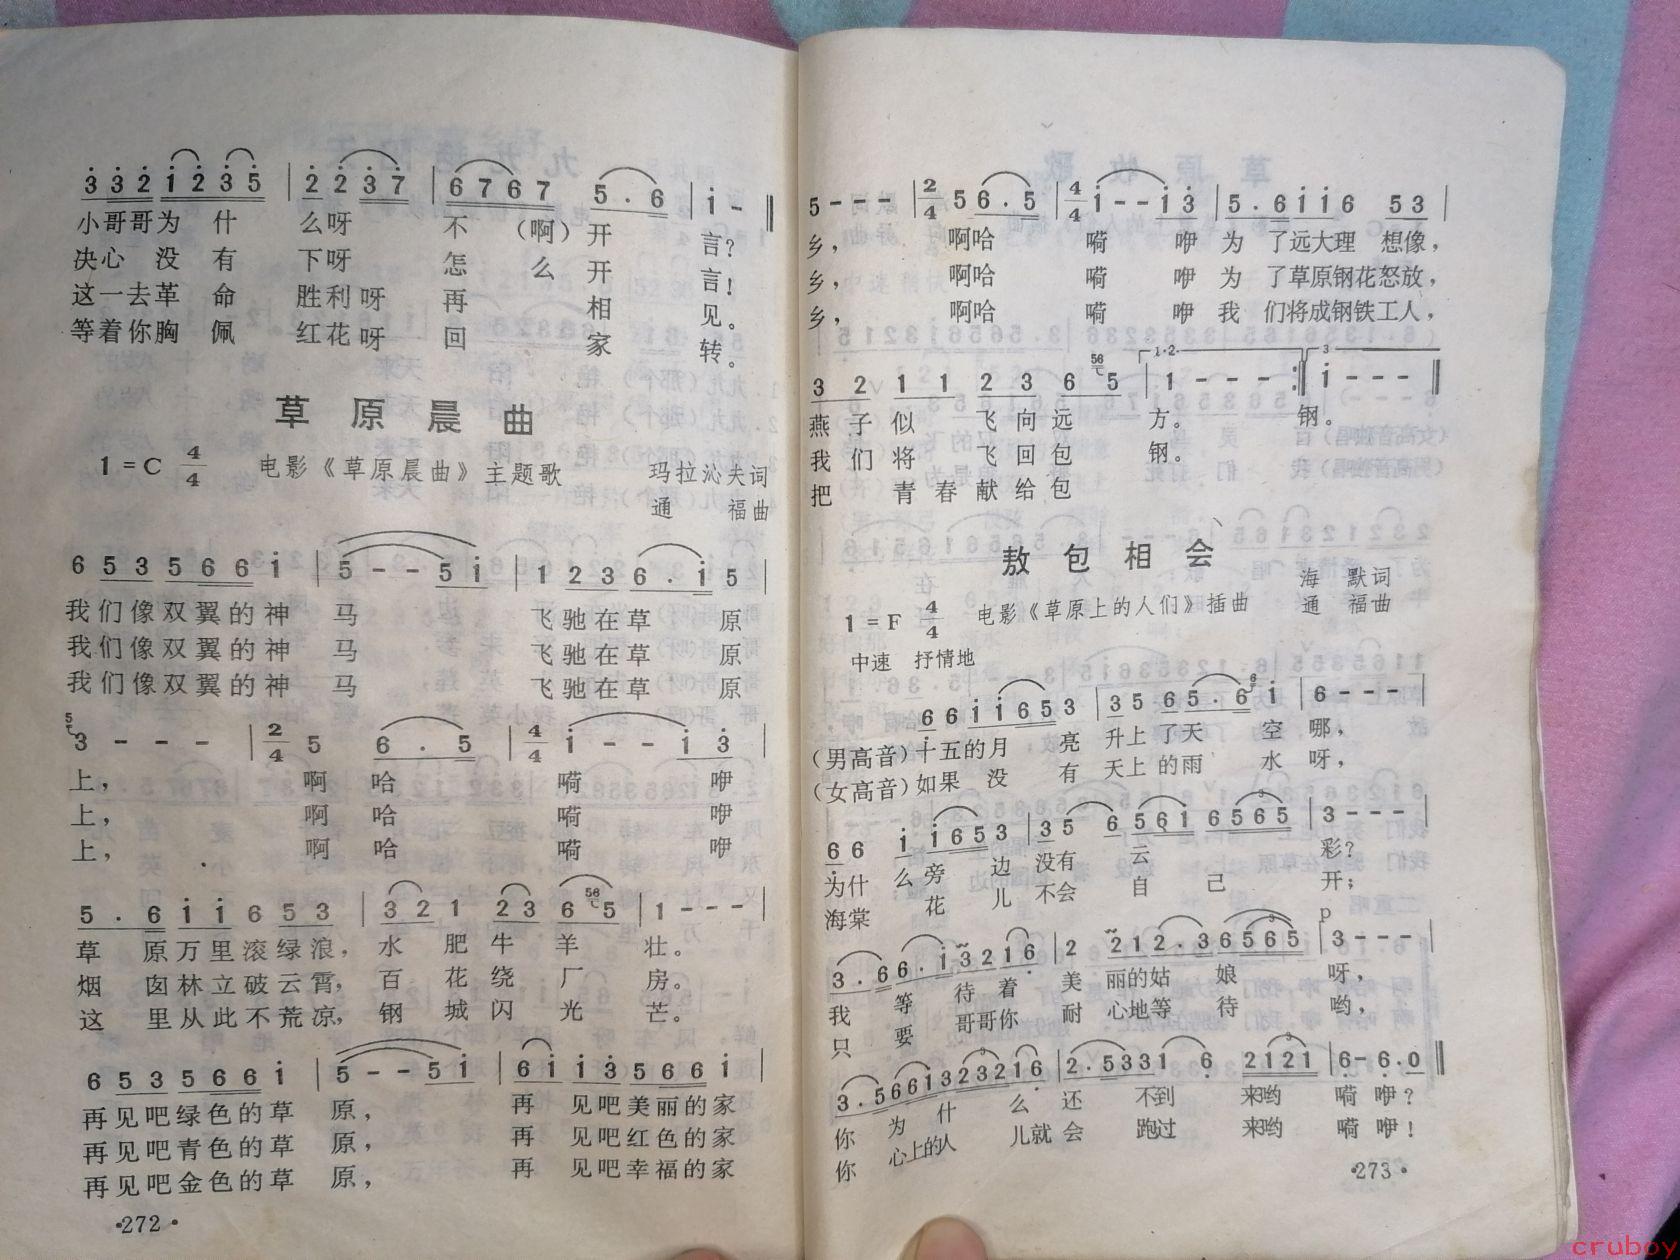 3 3 2 1 2 3 5 | 2 2 3 7 | 6 7 6 7 5 . 6 | i - ‖
小哥哥为什么呀不(啊)开言?
决心没有下呀怎么开言!
这一去革命胜利呀再相见。
等着你胸佩红花呀回家转。
草原晨曲
1=C 4/4 电影《草原晨曲》主题歌 玛拉沁夫词
通 福曲
6 5 3 5 6 6 i | 5 - - 5 i | 1 2 3 6 . i 5 |
我们像双翼的神马飞驰在草原
我们像双翼的神马飞驰在草原
我们像双翼的神马飞驰在草原
3 - - - | 2/4 5 6 . 5 | 4/4 i - - i 3 |
上,啊哈嗬咿
上,啊哈嗬咿
上,啊哈嗬咿
5 . 6 i i 6 5 3 | 3 2 1 2 3 6 5 | 1 - - - |
草原万里滚绿浪,水肥牛羊壮。
烟囱林立破云霄,百花绕厂房。
这里从此不荒凉,钢城闪光芒。
6 5 3 5 6 6 i | 5 - - 5 i | 6 i i 3 5 6 6 i |
再见吧绿色的草原,再见吧美丽的家
再见吧青色的草原,再见吧红色的家
再见吧金色的草原,再见吧幸福的家
·272·
5 - - - | 2/4 5 6 . 5 | 4/4 i - - i 3 | 5 . 6 i i 6 5 3 |
乡,啊哈嗬咿为了远大理想像,
乡,啊哈嗬咿为了草原钢花怒放,
乡,啊哈嗬咿我们将成钢铁工人,
3 2 1 1 2 3 6 5 | 1·2 1 - - - :‖ 3 i - - - ‖
燕子似飞向远方。钢。
我们将飞回包钢。
把青春献给包
敖包相会
海 默词
1=F 4/4 电影《草原上的人们》插曲 通 福曲
中速 抒情地
6 6 i i 6 5 3 | 3 5 6 5 . 6 i | 6 - - - |
(男高音)十五的月亮升上了天空哪,
(女高音)如果没有天上的雨水呀,
6 6 i i 6 5 3 | 3 5 6 5 6 i 6 5 6 5 | 3 - - - |
为什么旁边没有云彩?
海棠花儿不会自己开;
p
3 . 6 6 . i 3 2 1 6 | 2 2 1 2 . 3 6 5 6 5 | 3 - - - |
我等待着美丽的姑娘呀,
只要哥哥你耐心地等待哟,
3 . 5 6 6 i 3 2 3 2 1 6 | 2 . 5 3 3 1 6 2 1 2 1 | 6 - 6 . 0 ‖
你为什么还不到来哟嗬咿?
你心上的人儿就会跑过来哟嗬咿!
·273·
cruboy